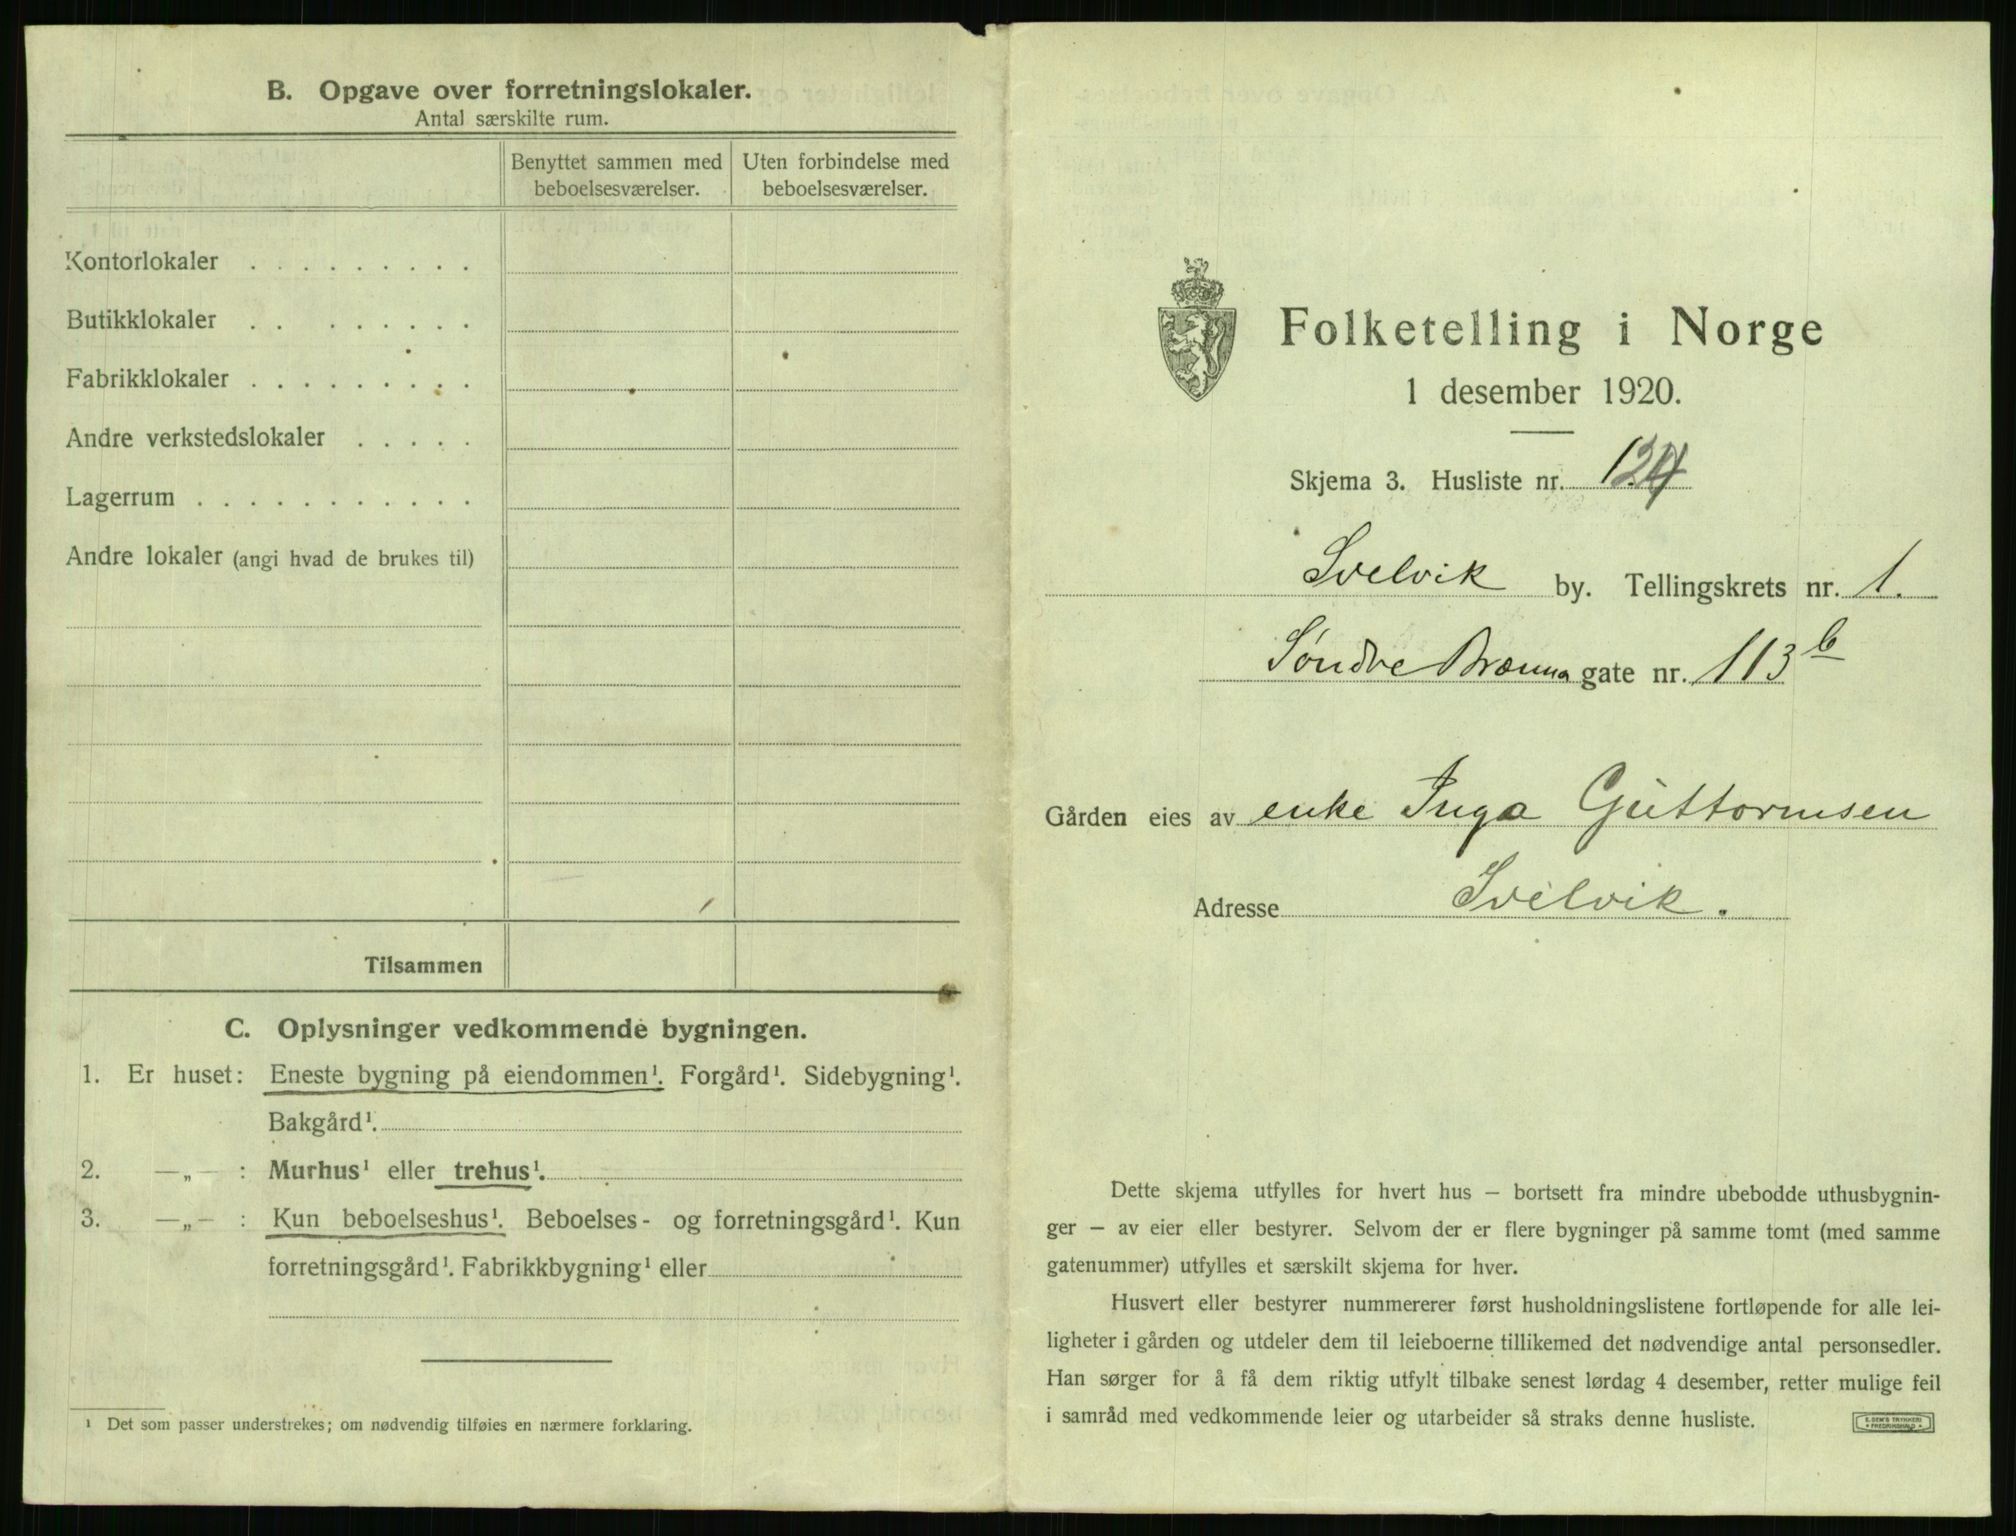 B. Opgave over forretningslokaler.
Antal særskilte rum.
Benyttet sammen med beboelsesværelser.
Uten forbindelse med beboelsesværelser.
Kontorlokaler . . . . . . . . .
Butikklokaler . . . . . . . .
Fabrikklokaler . . . . . . . . .
Andre verkstedslokaler . . . . .
Lagerrum . . . . . . . . . . .
Andre lokaler (angi hvad de brukes til)
Tilsammen
C. Oplysninger vedkommende bygningen.
1. Er huset: Eneste bygning på eiendommen¹. Forgård¹. Sidebygning¹.
Bakgård¹.
2. —„— : Murhus¹ eller trehus¹.
3. —„— : Kun beboelseshus¹. Beboelses- og forretningsgård¹. Kun
forretningsgård¹. Fabrikkbygning¹ eller
¹ Det som passer understrekes; om nødvendig tilføies en nærmere forklaring.
Folketelling i Norge
1 desember 1920.
Skjema 3. Husliste nr.
Svelvik by. Tellingskrets nr. 1.
Søndre Brænna gate nr. 113b
Gården eies av enke Inga Guttormsen
Adresse Svelvik.
Dette skjema utfylles for hvert hus — bortsett fra mindre ubebodde uthusbygnin-
ger — av eier eller bestyrer. Selvom der er flere bygninger på samme tomt (med samme
gatenummer) utfylles et særskilt skjema for hver.
Husvert eller bestyrer nummererer først husholdningslistene fortløpende for alle lei-
ligheter i gården og utdeler dem til leieboerne tillikemed det nødvendige antal personsedler.
Han sørger for å få dem riktig utfylt tilbake senest lørdag 4 desember, retter mulige feil
i samråd med vedkommende leier og utarbeider så straks denne husliste.
E. SEM'S TRYKKERI
FREDRIKSHALD